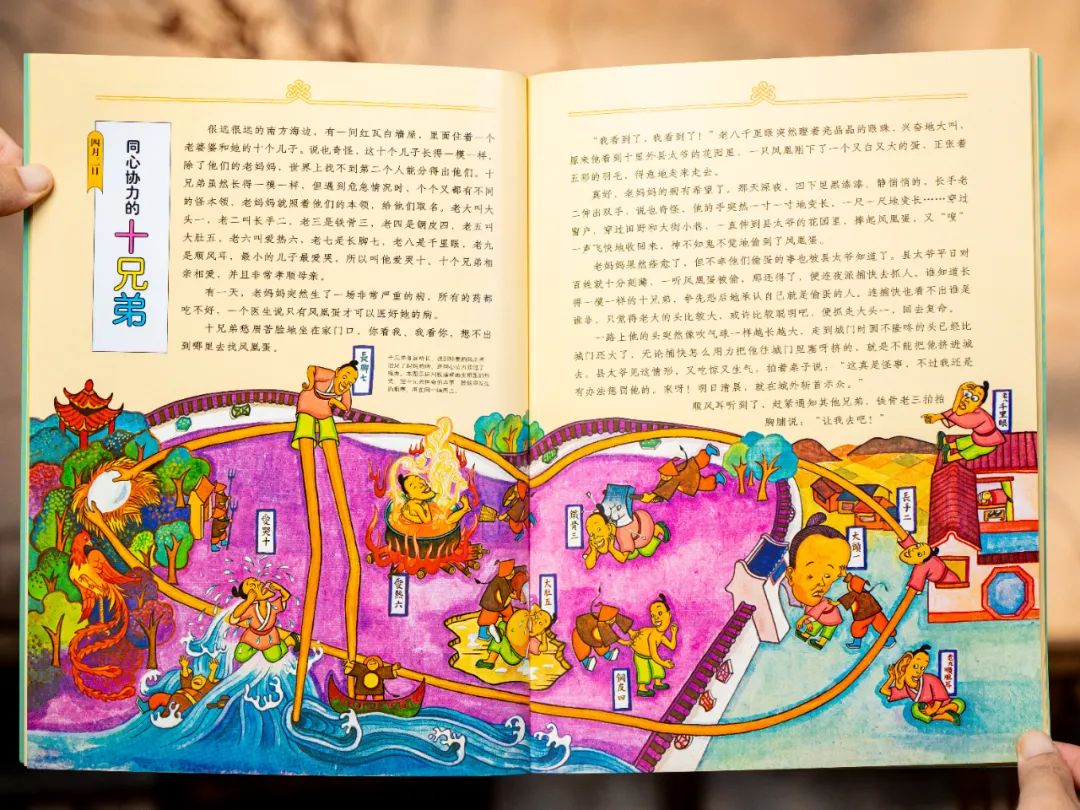 四月二日
同心协力的
十兄弟
很远很远的南方海边，有一间红瓦白墙屋，里面住着一个
老婆婆和她的十个儿子。说也奇怪，这十个儿子长得一模一样，
除了他们的老妈妈，世界上找不到第二个人能分得出他们。十
兄弟虽然长得一模一样，但遇到危急情况时，个个又都有不同
的怪本领，老妈妈就照着他们的本领，给他们取名。老大叫大
头一，老二叫长手二，老三是铁骨三，老四是铜皮四，老五叫
大肚五，老六叫爱热六，老七是长脚七，老八是千里眼，老九
是顺风耳，最小的儿子最爱哭，所以叫他爱哭十。十个兄弟相
亲相爱，并且非常孝顺母亲。
有一天，老妈妈突然生了一场非常严重的病，所有的药都
吃不好，一个医生说只有凤凰蛋才可以医好她的病。
十兄弟愁眉苦脸地坐在家门口，你看我，我看你，想不出
到哪里去找凤凰蛋。
“我看到了，我看到了！”老八千里眼突然瞪着亮晶晶的眼珠，兴奋地大叫，
原来他看到十里外县太爷的花园里，一只凤凰刚下了一个又白又大的蛋，正张着
五彩的羽毛，得意地走来走去。
真好，老妈妈的病有希望了。那天深夜，四下里黑漆漆，静悄悄的，长手老
二伸出双手，说也奇怪，他的手突然一寸一寸地变长，一尺一尺地变长……穿过
窗户，穿过田野和大街小巷，一直伸到县太爷的花园里，捧起凤凰蛋，又“嗖”
一声飞快地收回来，神不知鬼不觉地偷到了凤凰蛋。
老妈妈果然痊愈了，但不幸他们偷蛋的事也被县太爷知道了。县太爷平日对
百姓就十分刻薄，一听凤凰蛋被偷，那还得了，便连夜派捕快去抓人。谁知道长
得一模一样的十兄弟，争先恐后地承认自己就是偷蛋的人。连捕快也看不出谁是
谁非，只觉得老大的头比较大，或许比较聪明吧，便抓走大头一，回去复命。
一路上他的头突然像吹气球一样越长越大，走到城门时圆不隆咚的头已经比
城门还大了，无论捕快怎么用力把他往城门里塞呀挤的，就是不能把他挤进城
去。县太爷见这情形，又吃惊又生气，拍着桌子说：“这真是怪事，不过我还是
有办法惩罚他的，来呀！明日清晨，就在城外斩首示众。”
顺风耳听到了，赶紧通知其他兄弟，铁骨老三拍拍
胸脯说：“让我去吧！”
長腳七
愛哭十
愛熱六
鐵骨三
大肚五
銅皮四
大頭一
長手二